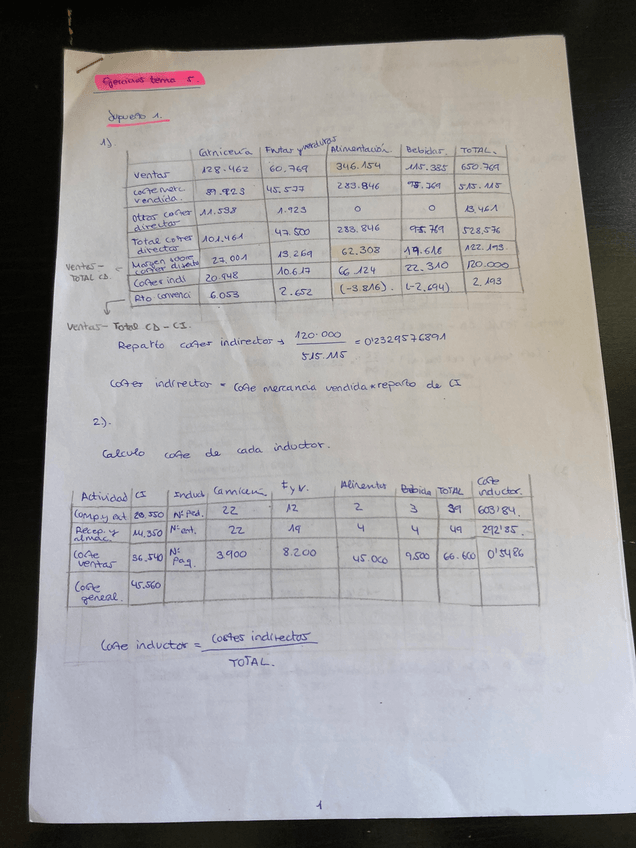 Ejercicios tema 5.
Supuesto 1.
1)
Carnicería Frutas y verduras Alimentación Bebidas TOTAL.
Ventas 128.462 60.769 346.154 115.385 650.769
Coste merc. vendida. 89.923 45.577 283.846 95.769 515.115
Otros costes directos 11.538 1.923 0 0 13.461
Total costes directos 101.461 47.500 283.846 95.769 528.576
Margen sobre costes directo 27.001 13.269 62.308 19.616 122.193
Costes indi 20.948 10.617 66.124 22.310 120.000
Rto convenci 6.053 2.652 (-3.816). (-2.694) 2.193
Ventas - TOTAL CD.
Ventas - Total CD - CI.
Reparto costes indirectos → 120.000 / 515.115 = 0'2329576891
Costes indirectos = Coste mercancia vendida * reparto de CI
2).
Calculo coste de cada inductor.
Actividad CI Induct Carnicería. F y V. Alimentos Bebida TOTAL Coste inductor.
Comp. y ext 23.550 Nº Ped. 22 12 2 3 39 603'84.
Recep. y almac. 14.350 Nº ent. 22 19 4 4 49 292'85.
Coste ventas 36.540 Nº Paq. 3900 8.200 45.000 9.500 66.600 0'5486
Coste general. 45.560
Coste inductor = Costes indirectos / TOTAL.
1